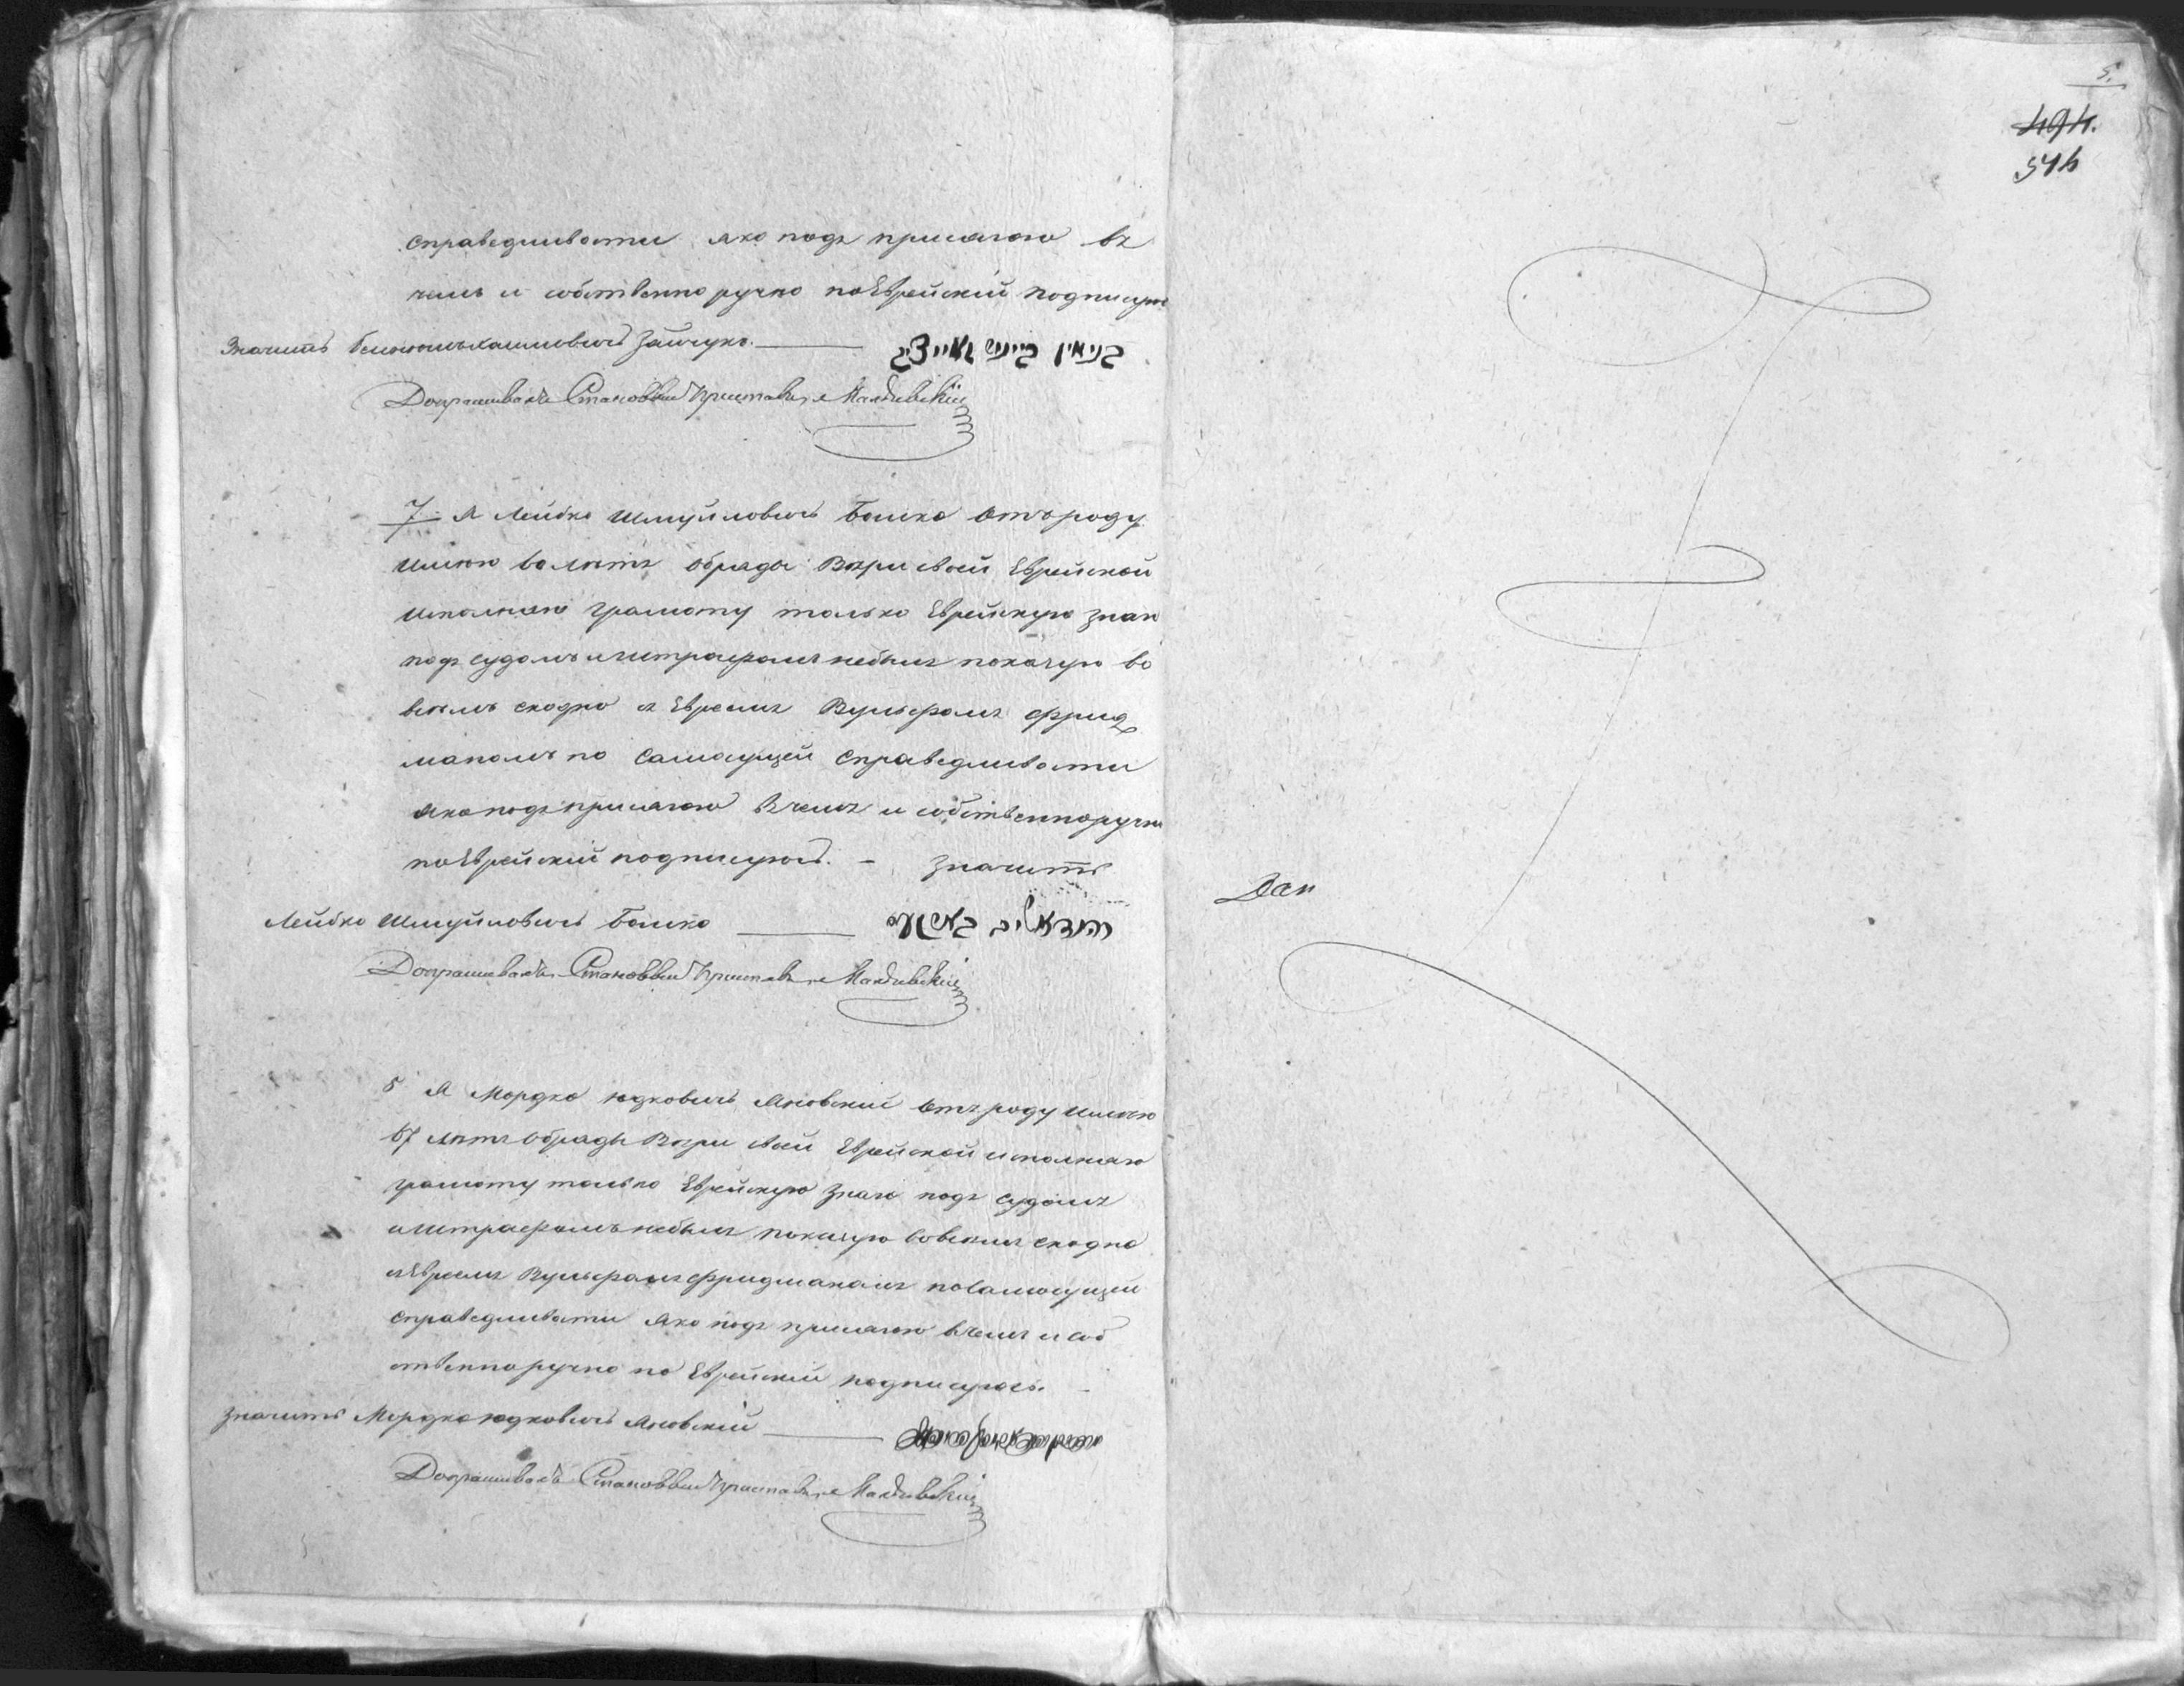 справедливости яко подъ присягою въ
чемъ и собственно ручно поЕврейскій подписуюсъ
Значитъ Зайчукъ.
בנימין זאייציג
Допрашивалъ Становый Приставъ
7. Я Лейбко Шмуйловичъ Бошко Отъ роду
Имею лѣтъ обряды Вѣри своей Еврейской
исполняю грамоту только Еврейскую знаю
подъ судомъ и штрафомъ небылъ покажую во
всемъ сходно съ Евреемъ Вульфомъ Фрид
маномъ по самосущей справедливости
яко подъ присягою Вчемъ и собственноручно
поЕврейскій подписуюсъ. — значитъ
Лейбко Шмуйловичъ Бошко
Допрашивалъ Становый Приставъ
8 Я Мордко Юдковичъ Яновскій Отъ роду имѣю
67 лѣтъ Обряды Вѣри своей Еврейской исполняю
грамоту только Еврейскую знаю подъ судомъ
и штрафомъ небылъ покажую вовсемъ сходно
съ Евреемъ Вульфомъ Фридманомъ по самосущей
справедливости яко подъ присягою вчемъ и соб
ственноручно по Еврейскій подписуюсь. —
значитъ Мордко Юдковичъ Яновскій
Допрашивалъ Становый Приставъ
5.
494.
544